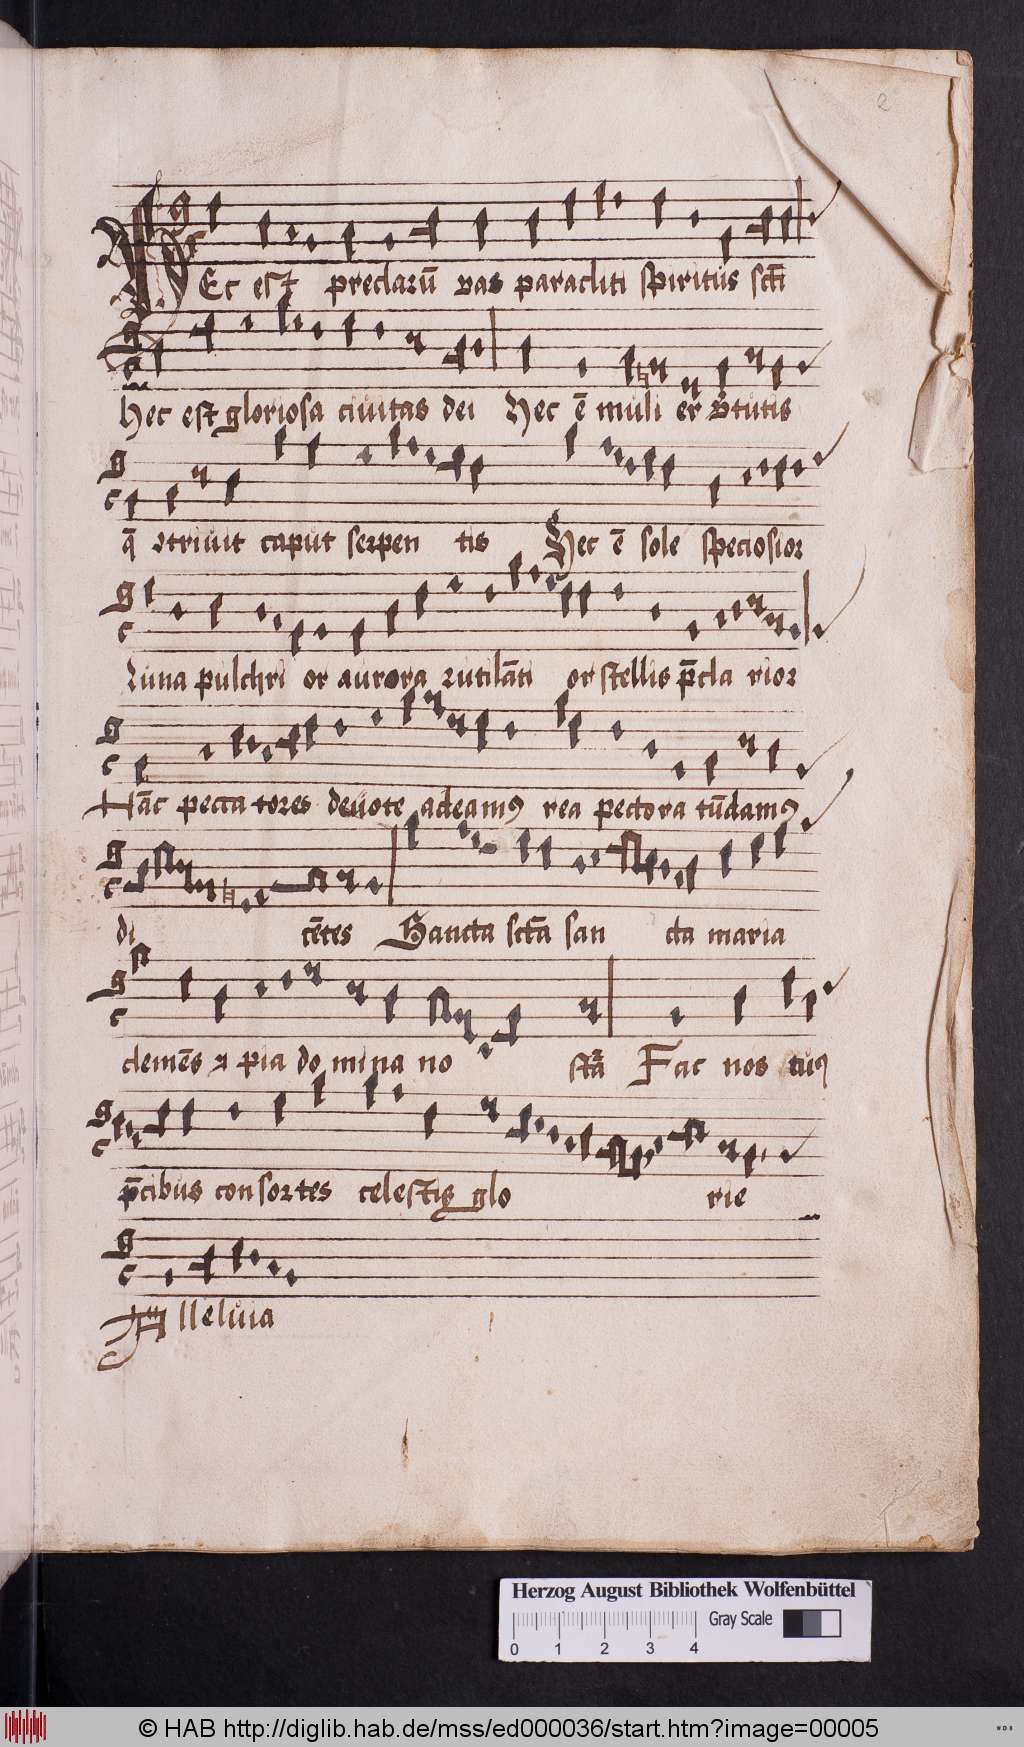 2
HEc est preclarū vas paracliti spiritus sctī
hec est gloriosa civitas dei Hec ē muli er vtutis
q̄ ctrivit caput serpen tis Hec ē sole speciosior
Luna pulchri or aurora rutilāti or stellis p̄cla rior
Hāc pecca tores devote adeamꝰ rea pectora tūdamꝰ
di cētes Sancta sctā san cta maria
clemēs ⁊ pia do mina no strā Fac nos tuis
p̄cibus consortes celestis glo rie
Alleluia
Herzog August Bibliothek Wolfenbüttel
0 1 2 3 4 Gray Scale
© HAB http://diglib.hab.de/mss/ed000036/start.htm?image=00005